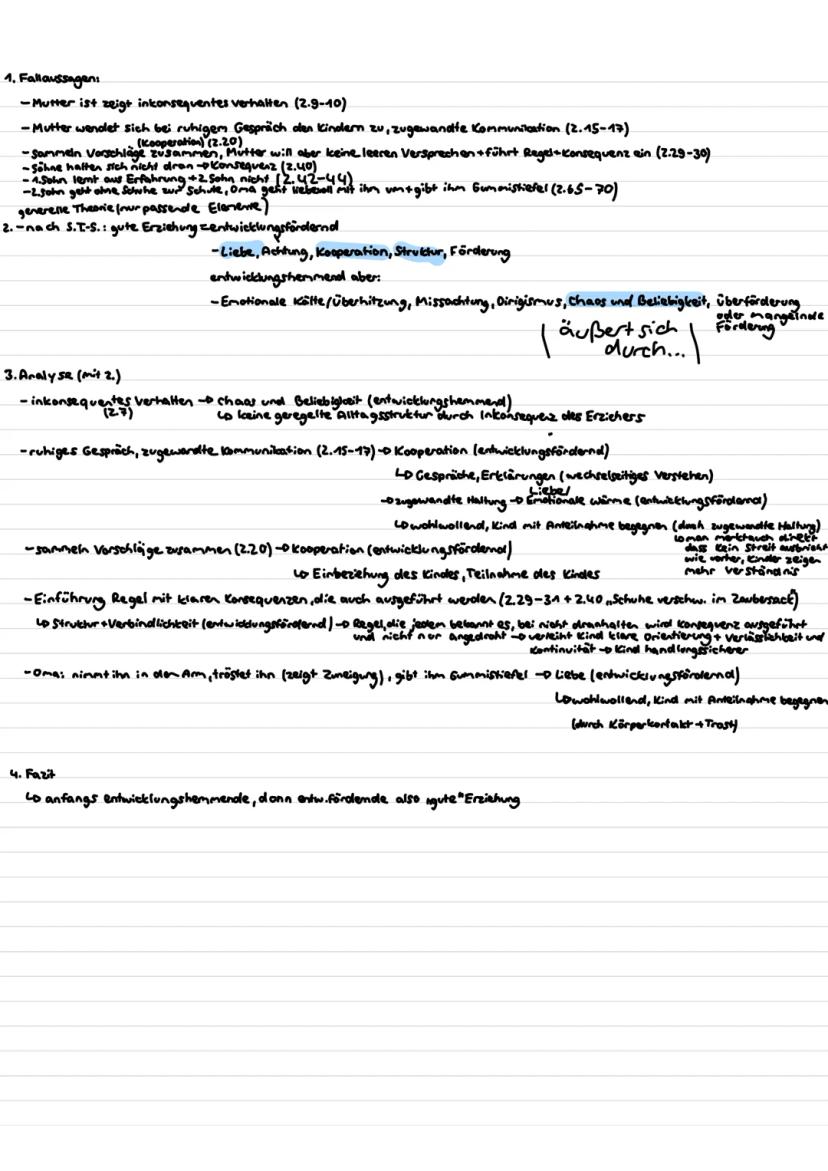 1. Fallaussagen:
- Mutter ist zeigt inkonsequentes verhalten (Z.9-10)
- Mutter wendet sich bei ruhigem Gespräch den Kindern zu, zugewandte Kommunikation (Z.15-17)
(Kooperation) (Z.20)
- sammeln Vorschläge zusammen, Mutter will aber keine leeren Versprechen + führt Regel + Konsequenz ein (Z.29-30)
- Söhne halten sich nicht dran → Konsequenz (Z.40)
- 1. Sohn lernt aus Erfahrung + 2. Sohn nicht (Z.42-44)
- 2. Sohn geht ohne Schuhe zur Schule, Oma geht liebevoll mit ihm um + gibt ihm Gummistiefel (Z.65-70)
generelle Theorie (nur passende Elemente)
2. - nach S.T.S.: gute Erziehung = entwicklungsfördernd
- Liebe, Achtung, Kooperation, Struktur, Förderung
entwicklungshemmend aber:
- Emotionale Kälte/Überhitzung, Missachtung, Dirigismus, Chaos und Beliebigkeit, überförderung
oder mangelnde
Förderung
| äußert sich |
durch...
3. Analyse (mit 2.)
- inkonsequentes Verhalten → Chaos und Beliebigkeit (entwicklungshemmend)
(Z.7)
↳ keine geregelte Alltagsstruktur durch Inkonsequenz des Erziehers
- ruhiges Gespräch, zugewandte Kommunikation (Z.15-17) → Kooperation (entwicklungsfördernd)
↳ Gespräche, Erklärungen (wechselseitiges Verstehen)
Liebe/
→ zugewandte Haltung → Emotionale wärme (entwicklungsfördernd)
↳ wohlwollend, Kind mit Anteilnahme begegnen (durch zugewandte Haltung)
↳ man merkt auch direkt
dass kein Streit ausbricht
wie vorher, Kinder zeigen
mehr Verständnis
- sammeln Vorschläge zusammen (Z.20) → Kooperation (entwicklungsfördernd)
↳ Einbeziehung des Kindes, Teilnahme des Kindes
- Einführung Regel mit klaren Konsequenzen, die auch ausgeführt werden (Z.29-31 + Z.40 „Schuhe verschw. im Zaubersack)
↳ Struktur + Verbindlichkeit (entwicklungsfördernd) → Regel, die jedem bekannt es, bei nicht dranhalten wird Konsequenz ausgeführt
und nicht nur angedroht → verleiht Kind klare Orientierung + Verlässlichkeit und
Kontinuität → Kind handlungssicherer
- Oma: nimmt ihn in den Arm, tröstet ihn (zeigt Zuneigung), gibt ihm Gummistiefel → Liebe (entwicklungsfördernd)
↳ wohlwollend, Kind mit Anteilnahme begegnen
(durch Körperkontakt + Trost)
4. Fazit
↳ anfangs entwicklungshemmende, dann entw.fördernde also „gute" Erziehung